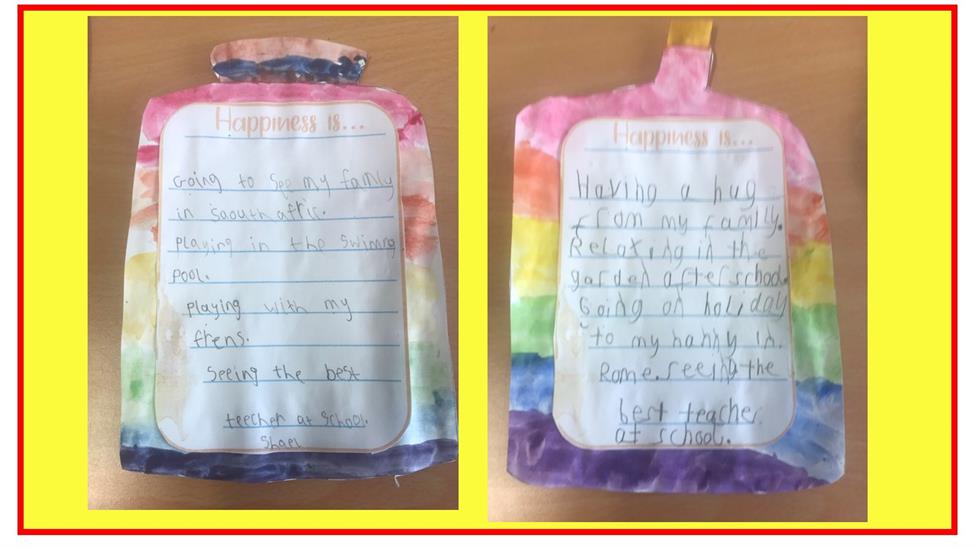 Happiness is...
Going to see my family
in saouth affric.
Playing in the swimmg
pool.
playing with my
frens.
seeing the best
teecher at school.
Shael
Happiness is...
Having a hug
from my family.
Relaxing in the
garden after school.
Going on holiday
to my nanny in.
Rome. seeing the
best teacher
at school.